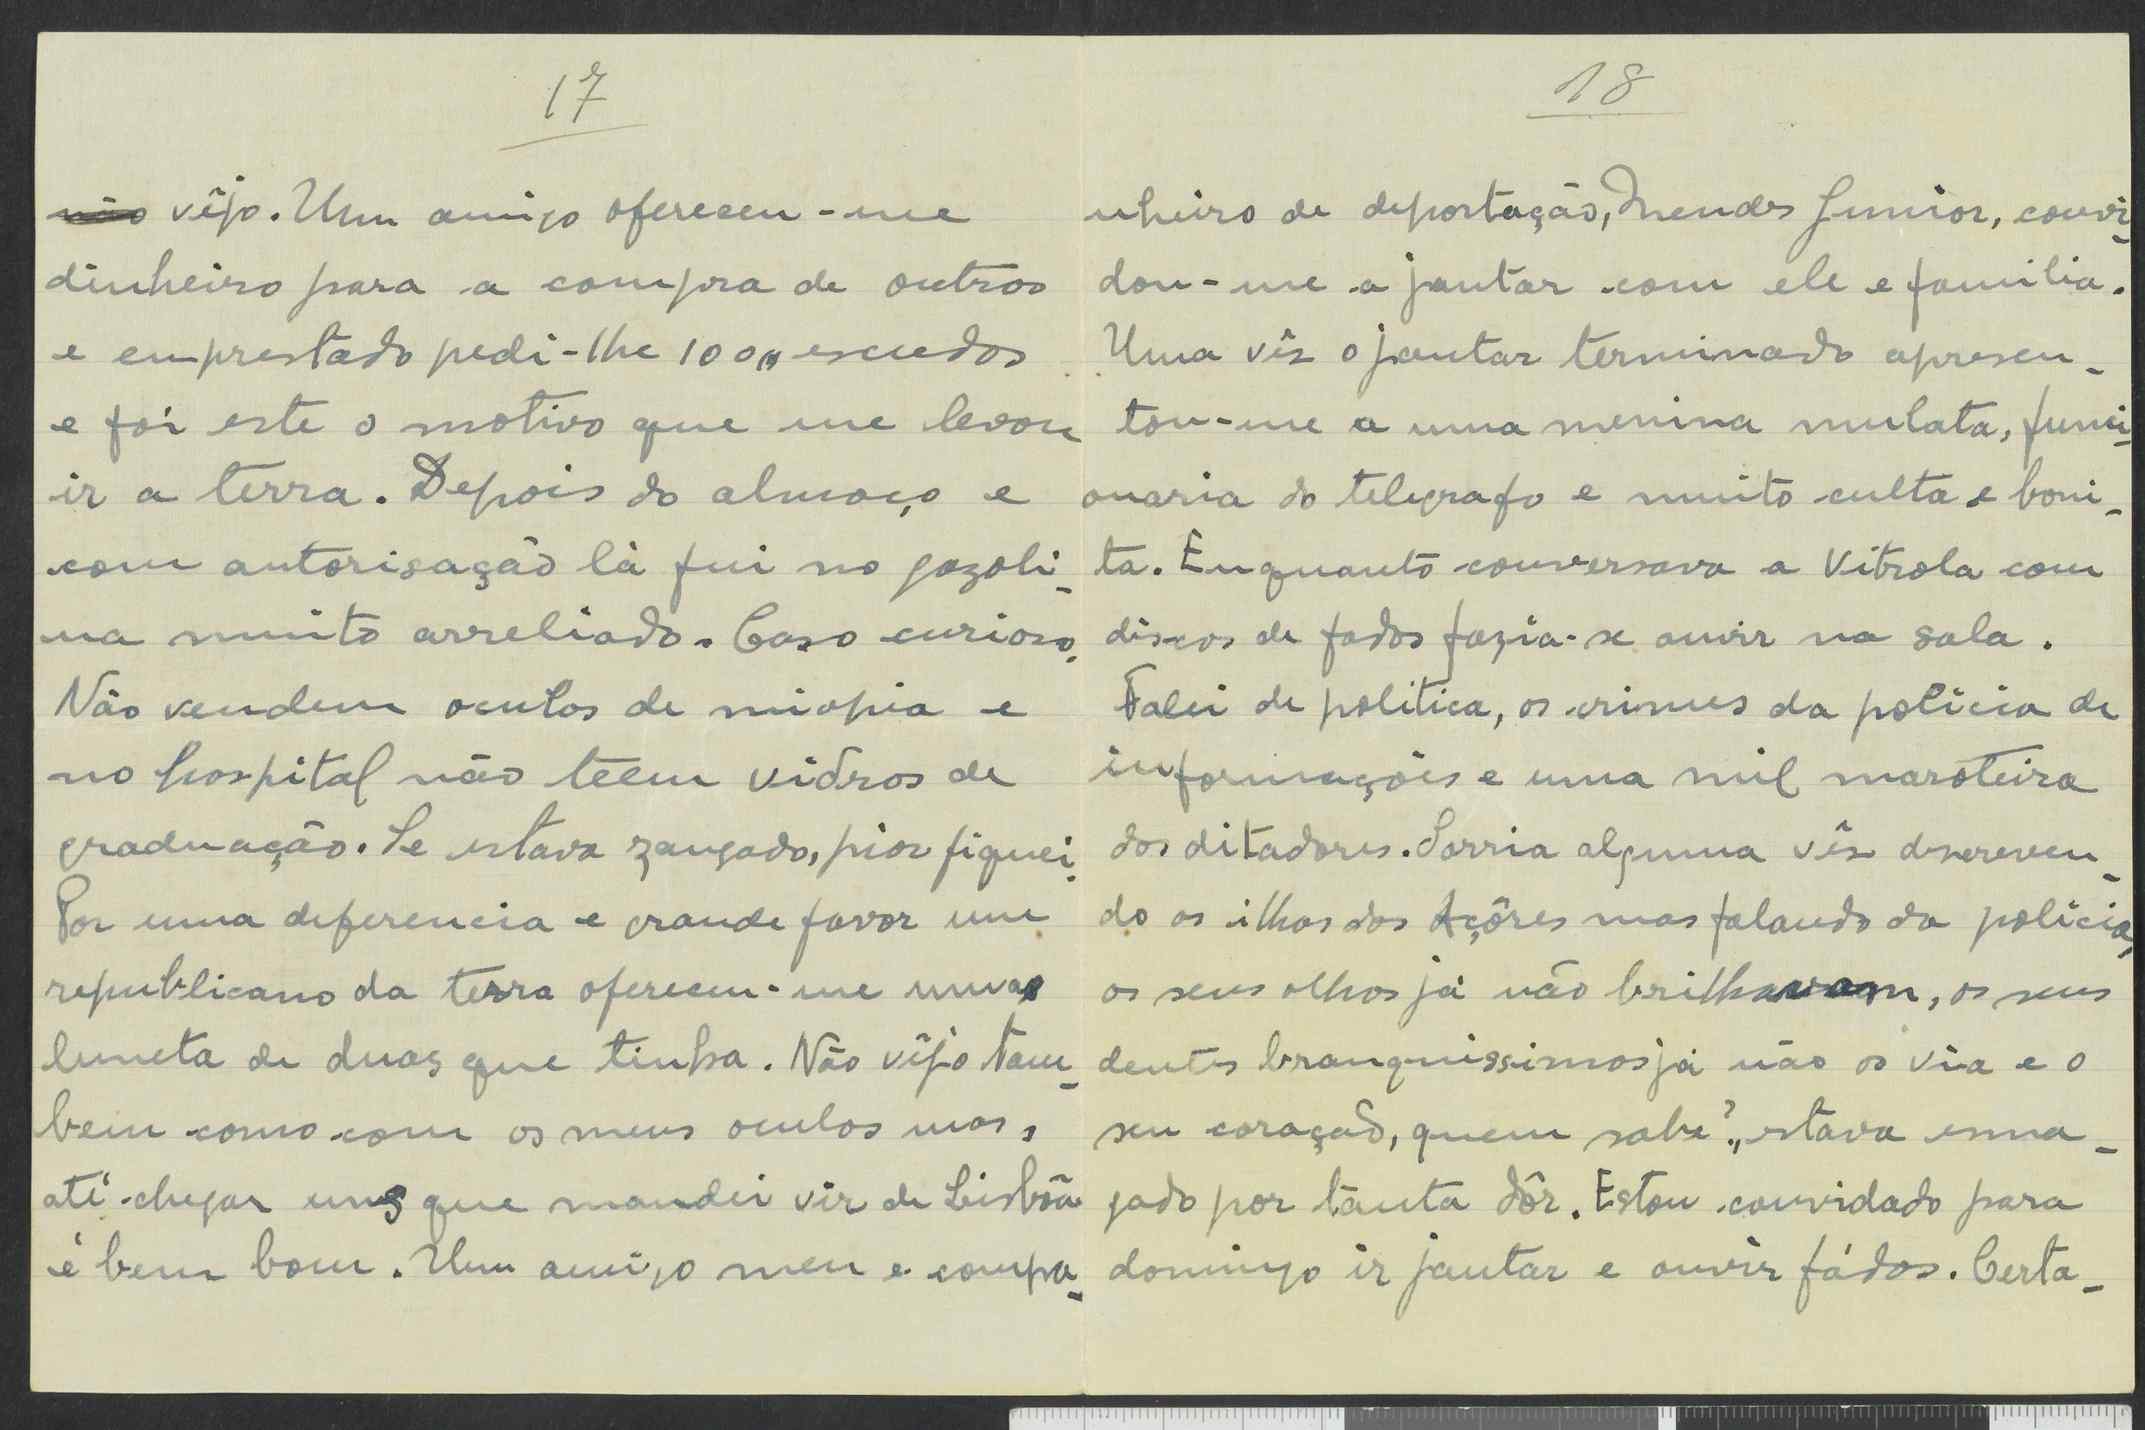 17
não vêjo. Um amigo ofereceu-me
dinheiro para a compra de outros
e emprestado pedi-lhe 100,, escudos
e foi este o motivo que me levou
ir a terra. Depois do almoço e
com autorisação lá fui no gazoli_
na muito arreliado. Caso curioso.
Não vendem oculos de miopia e
no hospital não teem vidros de
graduação. Se estava zangado, pior fiquei.
Por uma deferencia e grande favor um
republicano da terra ofereceu-me umas
luneta de duas que tinha. Não vêjo tam_
bem como com os meus oculos mas,
até chegar uns que mandei vir de Lisbôa
é bem bom. Um amigo meu e compa_
18
nheiro de deportação, Mendes Junior, convi_
dou-me a jantar com ele e familia.
Uma vês o jantar terminado apresen_
tou-me a uma menina mulata, funci_
onaria do telegrafo e muito culta e boni_
ta. Enquanto conversava a Vitrola com
discos de fados fazia-se ouvir na sala.
Falei de politica, os crimes da policia de
informações e uma mil maroteira
dos ditadores. Sorria alguma vês descreven_
do as ilhas dos Açôres mas falando da policia,
os seus olhos já não brilhavam, os seus
dentes branquissimos já não os via e o
seu coração, quem sabe?,, estava esma_
gado por tanta dôr. Estou convidado para
domingo ir jantar e ouvir fádos. Certa_